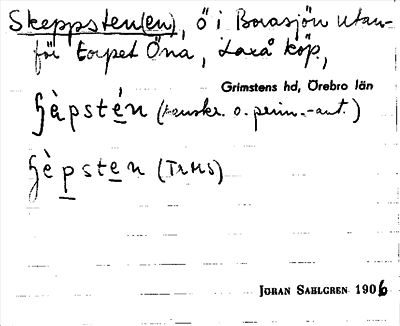 Skeppsten(en), ö i Borasjön utan-
för torpet Öna, Laxå köp,
Grimstens hd, Örebro län
ɧèpstén (kanskr. o. prim.-ant.)
ɧèpsten (TrMS)
JÖRAN SAHLGREN 1906